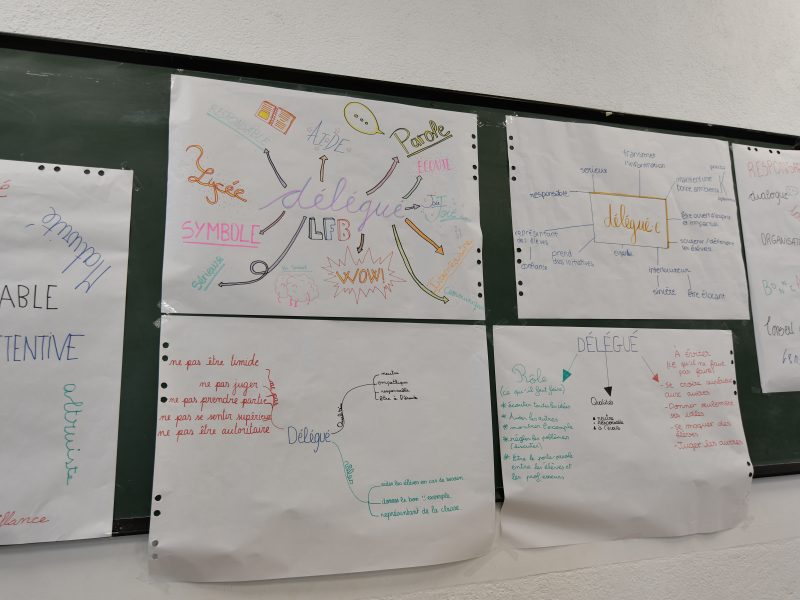 Maturité
ABLE
TTENTIVE
altruiste
illance
RESPONSABLE
AIDE
Parole
ÉCOUTE
Lycée
délégué
LFB
SYMBOLE
WOW!
Sérieux
transmet
l'information
sérieux
responsable
maintient une
bonne ambiance
délégué·e
être ouvert d'esprit
et impartial
représentant
des élèves
soutenir/défendre
les élèves
prend
des initiatives
confiance
sincère
être éloquent
RESPONSA
dialogue
ORGANISA
ne pas être timide
ne pas juger
ne pas prendre partie
ne pas se sentir supérieur
ne pas être autoritaire
Délégué
Qualité
neutre
empathique
responsable
être à l'écoute
rôles
aider les élèves en cas de besoin
donner le bon exemple
représentant de la classe
DÉLÉGUÉ
Rôle
(ce qu'il fait faire)
* écouter toutes les idées
* Aider les autres
* montrer l'exemple
* régler les problèmes
(discuter)
* Être le porte-parole
entre les élèves et
les professeurs
Qualités
neutre
responsable
à l'écoute
À éviter
(ce qu'il ne faire
pas faire)
- Se croire supérieur
aux autres
- Donner seulement
ses idées
- Se moquer des
élèves
- Juger les autres